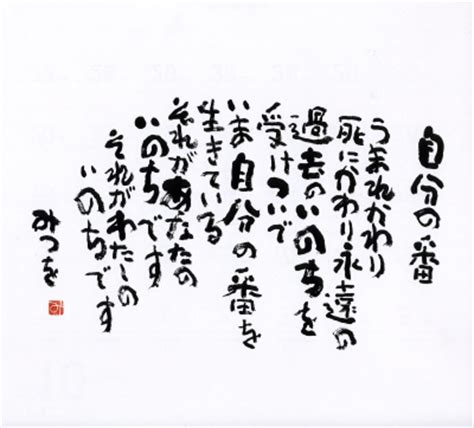 自分の番
うまれかわり
死にかわり永遠の
過去のいのちを
受けついで
いま自分の番を
生きている
それがあなたの
いのちです
それがわたしの
いのちです
みつを